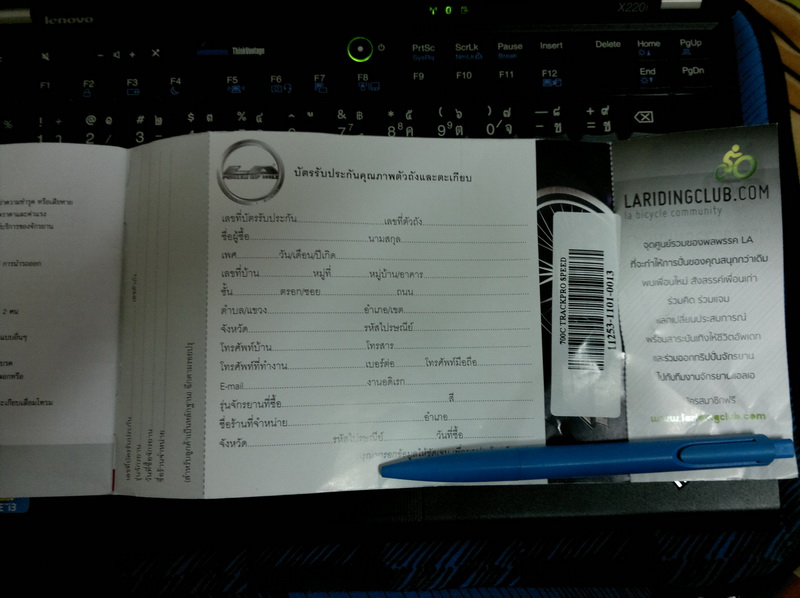 lenovo
X220i
ThinkVantage
PrtSc
SysRq
ScrLk
NmLk
Pause
Break
Insert
Delete
Home
PgUp
End
PgDn
F1
F2
F3
F4
F5
F6
F7
F8
F9
F10
F11
F12
บัตรรับประกันคุณภาพตัวถังและตะเกียบ
เลขที่บัตรรับประกัน เลขที่ตัวถัง
ชื่อผู้ซื้อ นามสกุล
เพศ วัน/เดือน/ปีเกิด
เลขที่บ้าน หมู่ที่ หมู่บ้าน/อาคาร
ชั้น ตรอก/ซอย ถนน
ตำบล/แขวง อำเภอ/เขต
จังหวัด รหัสไปรษณีย์
โทรศัพท์บ้าน โทรสาร
โทรศัพท์ที่ทำงาน เบอร์ต่อ โทรศัพท์มือถือ
E-mail งานอดิเรก
รุ่นจักรยานที่ซื้อ สี
ชื่อร้านที่จำหน่าย อำเภอ
จังหวัด รหัสไปรษณีย์ วันที่ซื้อ
เลขที่บัตรรับประกัน
รุ่นจักรยาน
วันที่ซื้อจักรยาน
ชื่อร้านจำหน่าย
เลขตัวถัง
700C TRACKPRO SPEED
11253-1101-0013
LARIDINGCLUB.COM
la bicycle community
จุดศูนย์รวมของพลพรรค LA
ที่จะทำให้การปั่นของคุณสนุกกว่าเดิม
พบเพื่อนใหม่ สังสรรค์เพื่อนเก่า
ร่วมคิด ร่วมแจม
แลกเปลี่ยนประสบการณ์
พร้อมสาระบันเทิงให้ชีวิตอัพเดท
และร่วมออกทริปปั่นจักรยาน
ไปกับทีมงานจักรยานแอลเอ
สมัครสมาชิกฟรี
www.laridingclub.com